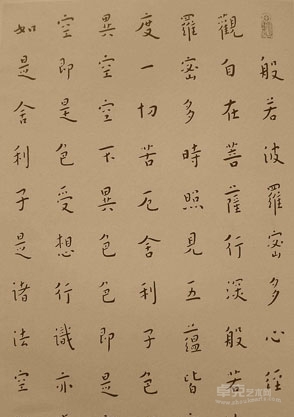 般若波羅密多心經
觀自在菩薩行深般若
羅密多時照見五蘊皆
度一切苦厄舍利子色
異空空不異色色即是
空即是色受想行識亦
如是舍利子是諸法空
卓克艺术网